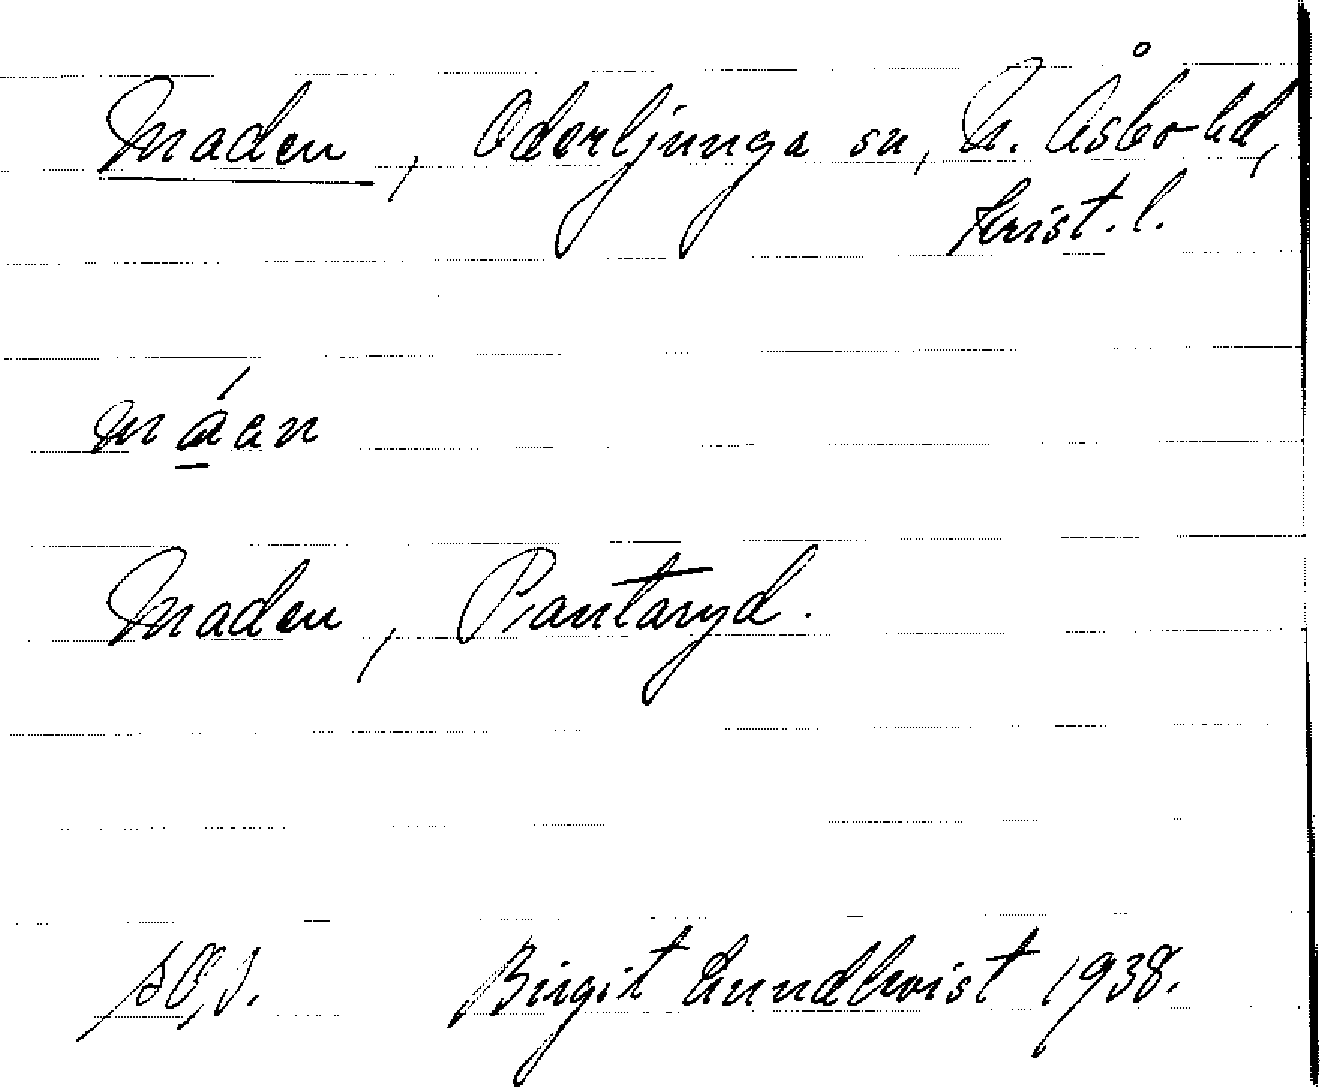 Maden, Oderljunga sn, N. Åsbo hd,
Krist. l.
máan
Maden, Pantaryd.
Birgit Lundkvist 1938.